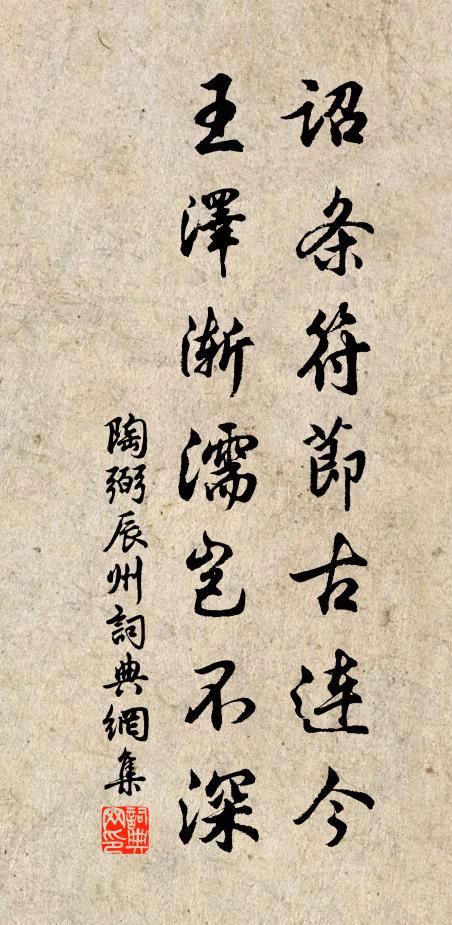 诏条符節古連今
王澤漸濡豈不深
陶弼辰州詞典網集
詞典網印